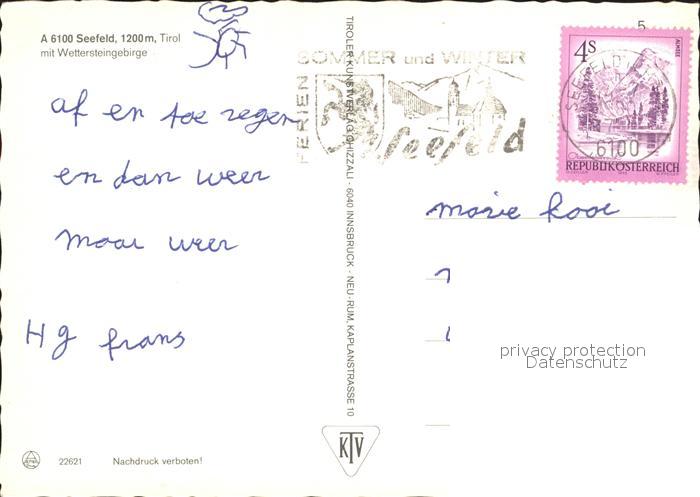 A 6100 Seefeld, 1200 m, Tirol
mit Wettersteingebirge
af en toe regen
en dan weer
maar weer
Hg frans
22621 Nachdruck verboten!
TIROLER KUNSTVERLAG CHIZZALI · 6040 INNSBRUCK - NEU-RUM, KAPLANSTRASSE 10
KTV
FERIEN
SOMMER und WINTER
Seefeld
5
4 S
ALMSEE
6100
REPUBLIK ÖSTERREICH
marie kooi
privacy protection
Datenschutz